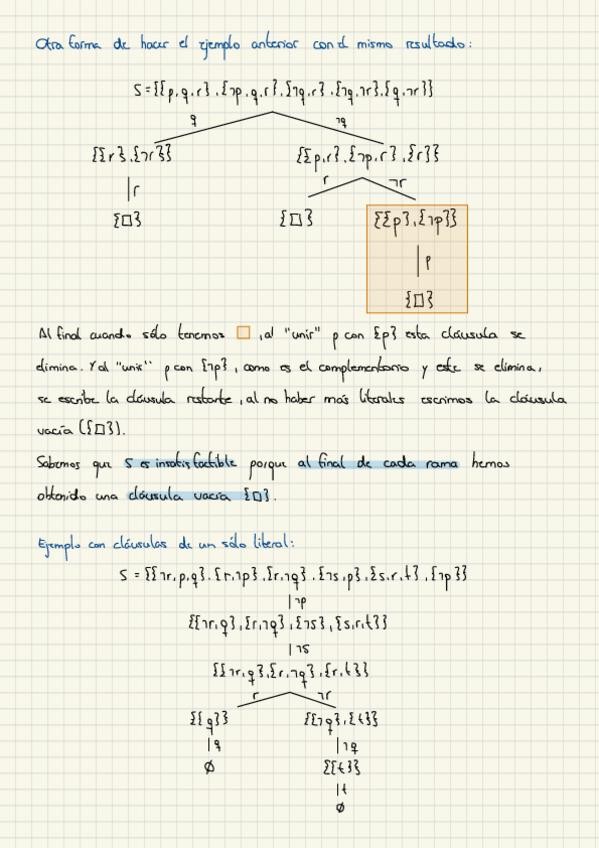 Otra forma de hacer el ejemplo anterior con el mismo resultado:
S = {{p,q,r},{¬p,q,r},{¬q,r},{¬q,¬r},{q,¬r}}
q ¬q
{{r},{¬r}} {{p,r},{¬p,r},{¬r}}
r r ¬r
{□} {□} {{p},{¬p}}
p
{□}
Al final cuando sólo tenemos □, al "unir" p con {p} esta cláusula se
elimina. Y al "unir" p con {¬p}, como es el complementario y este se elimina,
se escribe la cláusula restante, al no haber más literales escrimos la cláusula
vacía ({□}).
Sabemos que S es insatisfactible porque al final de cada rama hemos
obtenido una cláusula vacía {□}.
Ejemplo con cláusulas de un sólo literal:
S = {{¬r,p,q},{r,¬p},{r,¬q},{¬s,p},{s,r,t},{¬p}}
¬p
{{¬r,q},{r,¬q},{¬s},{s,r,t}}
¬s
{{¬r,q},{r,¬q},{r,t}}
r ¬r
{{q}} {{¬q},{t}}
q ¬q
∅ {{t}}
t
∅